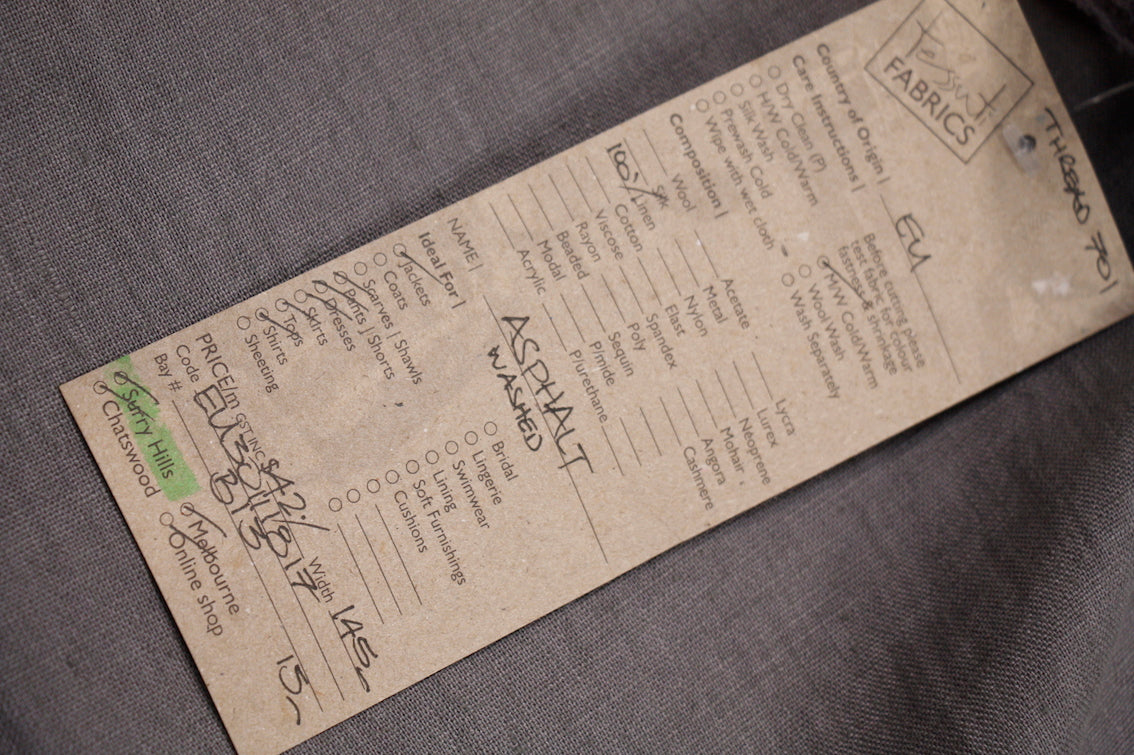 THREAD 701
Tessuti
FABRICS
Country of Origin | EU
Care Instructions |
Dry Clean (P)
H/W Cold/Warm
Silk Wash
Prewash Cold
Wipe with wet cloth
Before cutting please
test fabric for colour
fastness & shrinkage
H/W Cold/Warm
Wool Wash
Wash Separately
Composition |
Wool
Silk
100% Linen
Cotton
Viscose
Rayon
Beaded
Modal
Acrylic
Acetate
Metal
Nylon
Elast
Spandex
Poly
Sequin
P/mide
P/urethane
Lycra
Lurex
Neoprene
Mohair
Angora
Cashmere
NAME | ASPHALT
WASHED
Ideal For |
Jackets
Coats
Scarves | Shawls
Pants | Shorts
Dresses
Skirts
Tops
Shirts
Sheeting
Bridal
Lingerie
Swimwear
Lining
Soft Furnishings
Cushions
PRICE/m GST INC $42./ Width 145
Code EU301TB17
Bay # B13 15
Surry Hills
Chatswood
Melbourne
Online shop